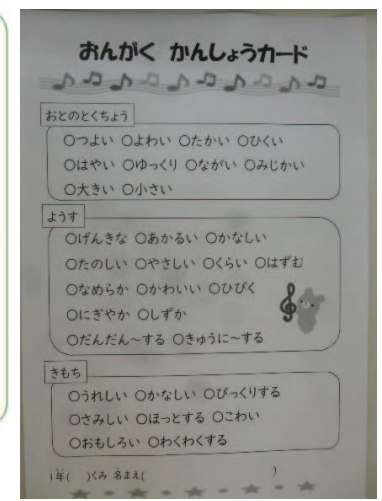 おんがく かんしょうカード
おとのとくちょう
○つよい ○よわい ○たかい ○ひくい
○はやい ○ゆっくり ○ながい ○みじかい
○大きい ○小さい
ようす
○げんきな ○あかるい ○かなしい
○たのしい ○やさしい ○くらい ○はずむ
○なめらか ○かわいい ○ひびく
○にぎやか ○しずか
○だんだん～する ○きゅうに～する
きもち
○うれしい ○かなしい ○びっくりする
○さみしい ○ほっとする ○こわい
○おもしろい ○わくわくする
1年( )くみ 名まえ( )